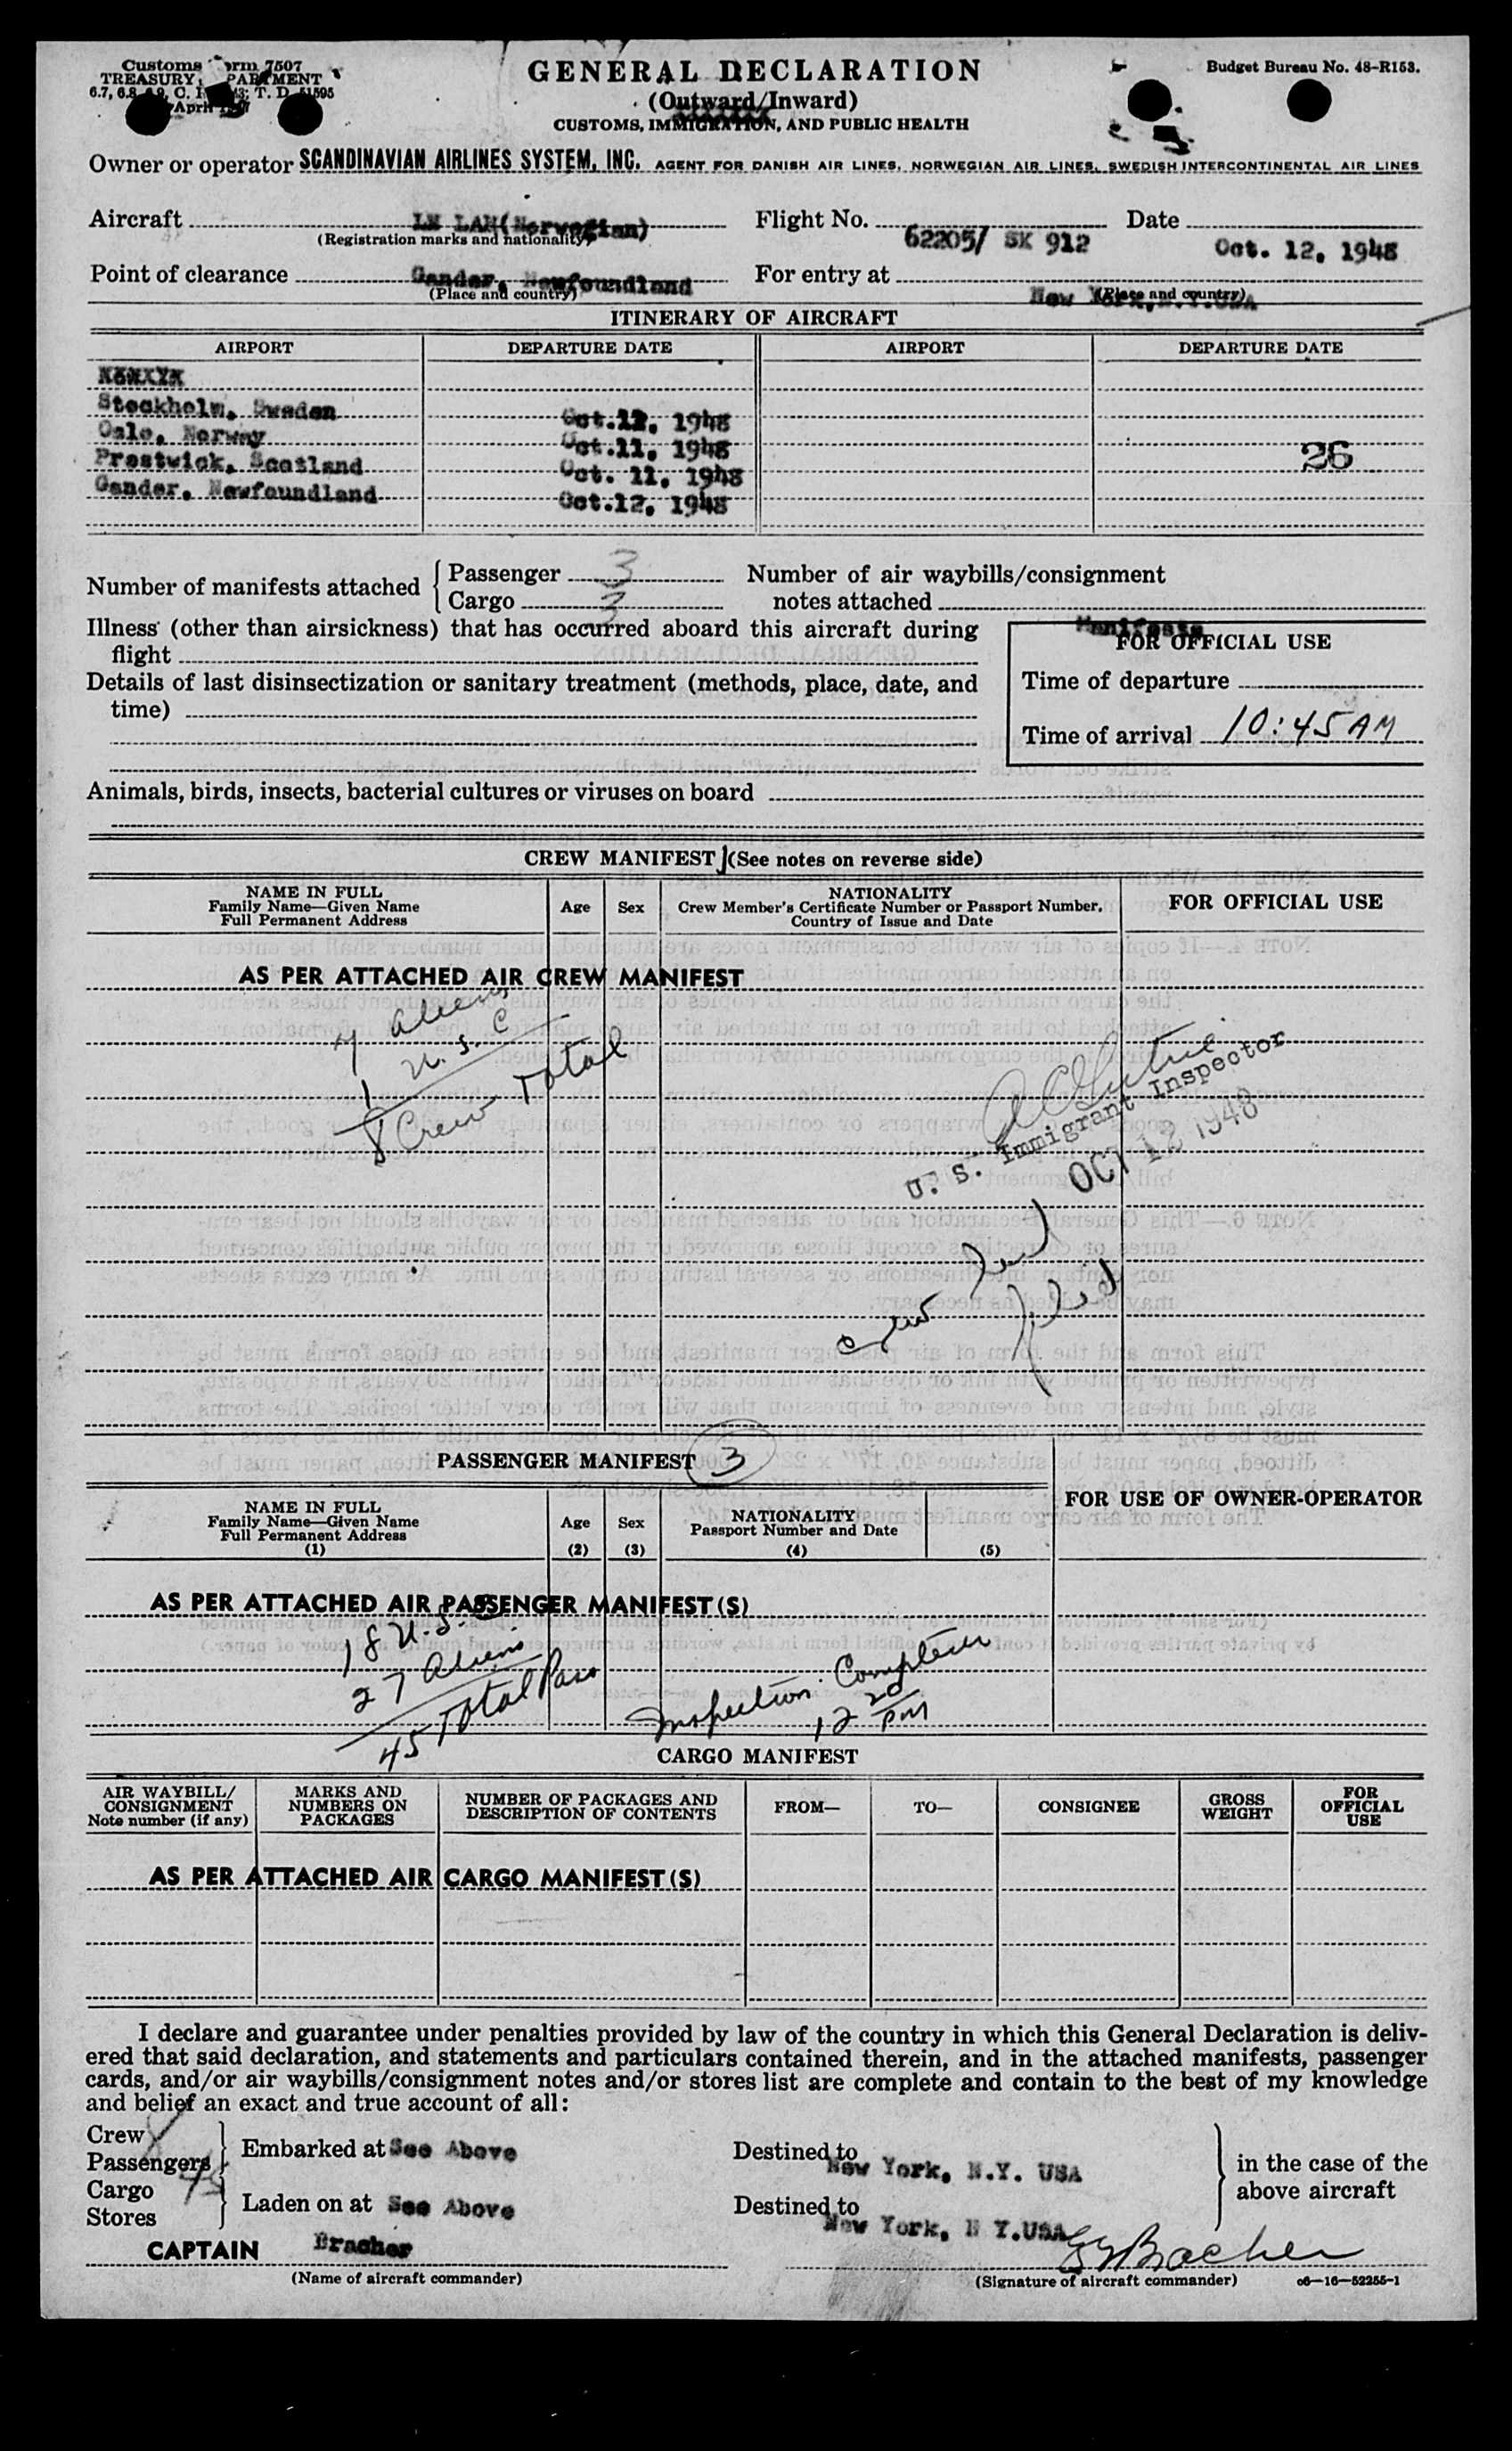 Customs orm 7507
TREASURY PARTMENT
6.7, 6.8 C. T. D. 51595
April
GENERAL DECLARATION
(Outward/Inward)
CUSTOMS, IMMIGRATION, AND PUBLIC HEALTH
Budget Bureau No. 48-R153.
Owner or operator SCANDINAVIAN AIRLINES SYSTEM, INC. AGENT FOR DANISH AIR LINES, NORWEGIAN AIR LINES, SWEDISH INTERCONTINENTAL AIR LINES
Aircraft LN LAH(Norwegian) Flight No. 62205/ SK 912 Date Oct. 12, 1948
(Registration marks and nationality)
Point of clearance Gander, Newfoundland For entry at New York, N.Y.USA
(Place and country) (Place and country)
ITINERARY OF AIRCRAFT
AIRPORT DEPARTURE DATE AIRPORT DEPARTURE DATE
Stockholm, Sweden Oct.12, 1948
Oslo, Norway Oct.11, 1948
Prestwick, Scotland Oct. 11, 1948 26
Gander, Newfoundland Oct.12, 1948
Number of manifests attached { Passenger 3 Number of air waybills/consignment
Cargo 3 notes attached Manifests
Illness (other than airsickness) that has occurred aboard this aircraft during
flight
FOR OFFICIAL USE
Details of last disinsectization or sanitary treatment (methods, place, date, and
time)
Time of departure
Time of arrival 10:45 AM
Animals, birds, insects, bacterial cultures or viruses on board
CREW MANIFEST (See notes on reverse side)
NAME IN FULL
Family Name—Given Name
Full Permanent Address
Age Sex
NATIONALITY
Crew Member's Certificate Number or Passport Number,
Country of Issue and Date
FOR OFFICIAL USE
AS PER ATTACHED AIR CREW MANIFEST
7 Aliens
1 U.S.C
8 Crew Total
U. S. Immigrant Inspector
OCT 12 1948
Crew
PASSENGER MANIFEST 3
NAME IN FULL
Family Name—Given Name
Full Permanent Address
(1)
Age
(2)
Sex
(3)
NATIONALITY
Passport Number and Date
(4) (5)
FOR USE OF OWNER-OPERATOR
AS PER ATTACHED AIR PASSENGER MANIFEST(S)
18 U.S.C
27 Aliens
45 Total Pass
Inspection Completed
12 20 PM
CARGO MANIFEST
AIR WAYBILL/
CONSIGNMENT
Note number (if any)
MARKS AND
NUMBERS ON
PACKAGES
NUMBER OF PACKAGES AND
DESCRIPTION OF CONTENTS
FROM— TO— CONSIGNEE
GROSS
WEIGHT
FOR
OFFICIAL
USE
AS PER ATTACHED AIR CARGO MANIFEST(S)
I declare and guarantee under penalties provided by law of the country in which this General Declaration is deliv-
ered that said declaration, and statements and particulars contained therein, and in the attached manifests, passenger
cards, and/or air waybills/consignment notes and/or stores list are complete and contain to the best of my knowledge
and belief an exact and true account of all:
Crew 8
Passengers 45 Embarked at See Above Destined to New York, N.Y. USA in the case of the
Cargo above aircraft
Stores Laden on at See Above Destined to New York, N Y.USA
CAPTAIN Bracher Bracher
(Name of aircraft commander) (Signature of aircraft commander) c6—16—52255-1